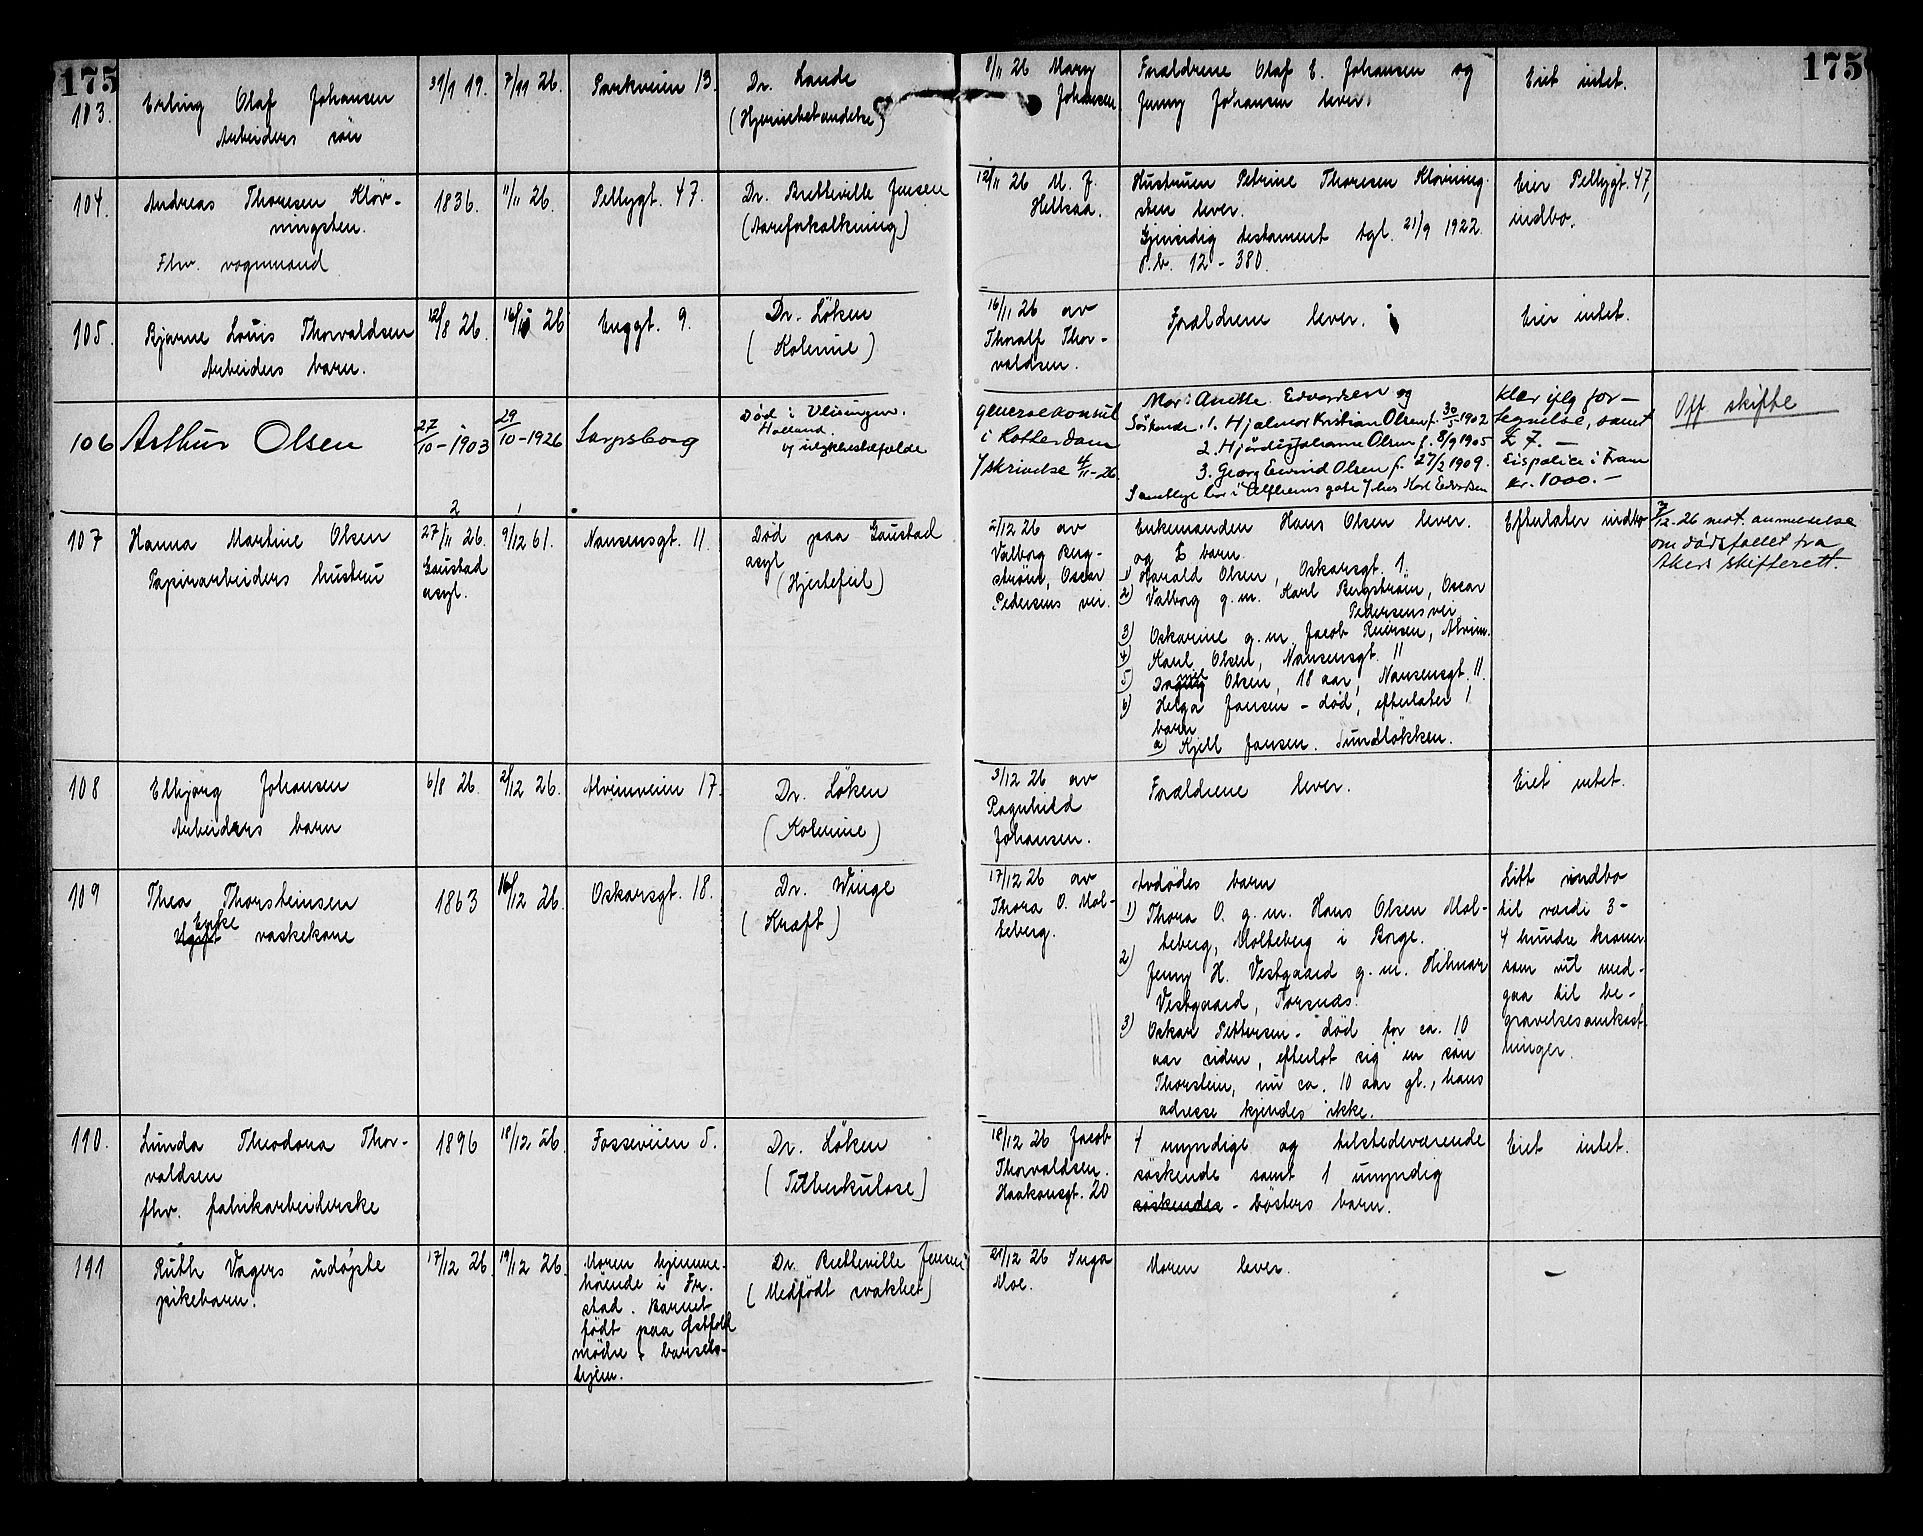 175
175
103.
Erling Olaf Johansen
Arbeiders søn
31/1 19.
7/11 26.
Parkveien 13.
Dr. Lande
(Hjernebetændelse)
8/11 26 Mary
Johansen
Forældrene Olaf E. Johansen og
Jenny Johansen lever.
Eiet intet.
104.
Andreas Thoresen Kløv-
ningsten.
Fhv. vognmand
1836.
11/11 26.
Pellygt. 47.
Dr. Bretteville Jensen
(Aareforkalkning)
12/11 26 M. J.
Hellsaa.
Hustruen Petrine Thoresen Kløvning-
sten lever.
Gjensidig testament tgl. 21/9 1922
P.b. 12 - 380.
Eier Pellygt. 47,
indbo.
105.
Bjarne Louis Thorvaldsen
Arbeiders barn.
12/8 26.
16/11 26
Enggt. 9.
Dr. Løken
(Kolerine)
16/11 26 av
Thoralf Thor-
valdsen.
Forældrene lever.
Eier intet.
106
Arthur Olsen
27/10 - 1903
29/10 - 1926
Sarpsborg
Død i Vlissingen.
Holland.
v/ ulykkestilfælde
Generalkonsul
i Rotterdam
skrivelse 4/11-26
Mor: Anette Edvardsen og
Søskende. 1. Hjalmar Kristian Olsen f. 30/5 1902
2. Hjørdis Johanne Olsen f. 8/9 1905
3. Georg Eivind Olsen f. 27/2 1909.
Samtlige bor i Alfheims gate 7 hos Karl Edvardsen
Klær iflg for-
tegnelse, samt
£ 7. —
Livspolice i Fram
kr. 1000. —
Off skifte
107
Hanna Martine Olsen
Papirarbeiders hustru
2
27/11 26.
Gaustad
asyl.
1
9/12 61.
Nansensgt. 11.
Død paa Gaustad
asyl
(Hjertefeil)
2/12 26 av
Valborg Berg-
strøm, Oscar
Pedersens vei.
Enkemanden Hans Olsen lever.
og 6 barn.
1) Harald Olsen, Oskarsgt. 1.
2) Valborg g.m. Karl Bergstrøm, Oscar
Pedersens vei
3) Oskarine g.m. Jacob Reiersen, Alvim.
4) Karl Olsen, Nansensgt. 11
5) Olsen, 18 aar, Nansensgt. 11.
6) Helga Jansen - død, efterlater 1
barn
a) Kjell Jansen. Sundløkken.
Efterlater indbo
7/12-26 mot. anmeldelse
om dødsfallet fra
Akers skifterett.
108
Elbjørg Johansen
Arbeiders barn
6/8 26.
2/12 26.
Alvimveien 17.
Dr. Løken
(Kolerine)
3/12 26 av
Ragnhild
Johansen.
Forældrene lever.
Eiet intet.
109
Thea Thorsteinsen
Enke
vaskekone
1863
16/12 26.
Oskarsgt. 18.
Dr. Winge
(Kræft)
17/12 26 av
Thora O. Mol-
teberg.
Avdødes barn
1) Thora O. g.m. Hans Olsen Mol-
teberg, Molteberg i Borge.
2) Jenny H. Vestgaard g.m. Hilmar
Vestgaard, Torsnæs.
3) Oskar Pettersen - død for ca. 10
aar siden, efterlot sig en søn
Thorstein, nu ca. 10 aar gl., hans
adresse kjendes ikke.
Litt indbo
til værdi 3-
4 hundre kroner
som vil med-
gaa til be-
gravelsesomkost-
ninger.
110.
Lunda Theodora Thor-
valdsen
fhv. fabrikarbeiderske
1896
18/12 26
Fosseveien 5.
Dr. Løken
(Tuberkulose)
18/12 26 Jacob
Thorvaldsen.
Haakonsgt. 20
4 myndige og tilstedeværende
søskende samt 1 umyndig
søskendes - søsters barn.
Eiet intet.
111
Ruth Vagers udøpte
pikebarn.
17/12 26
19/12 26.
Moren hjemme-
hørende i Fr.
stad. Barnet
født paa Østfold
mødre & barsels-
hjem.
Dr. Bretteville Jensen
(Medfødt svakhet)
21/12 26 Inga
Moe.
Moren lever.
—